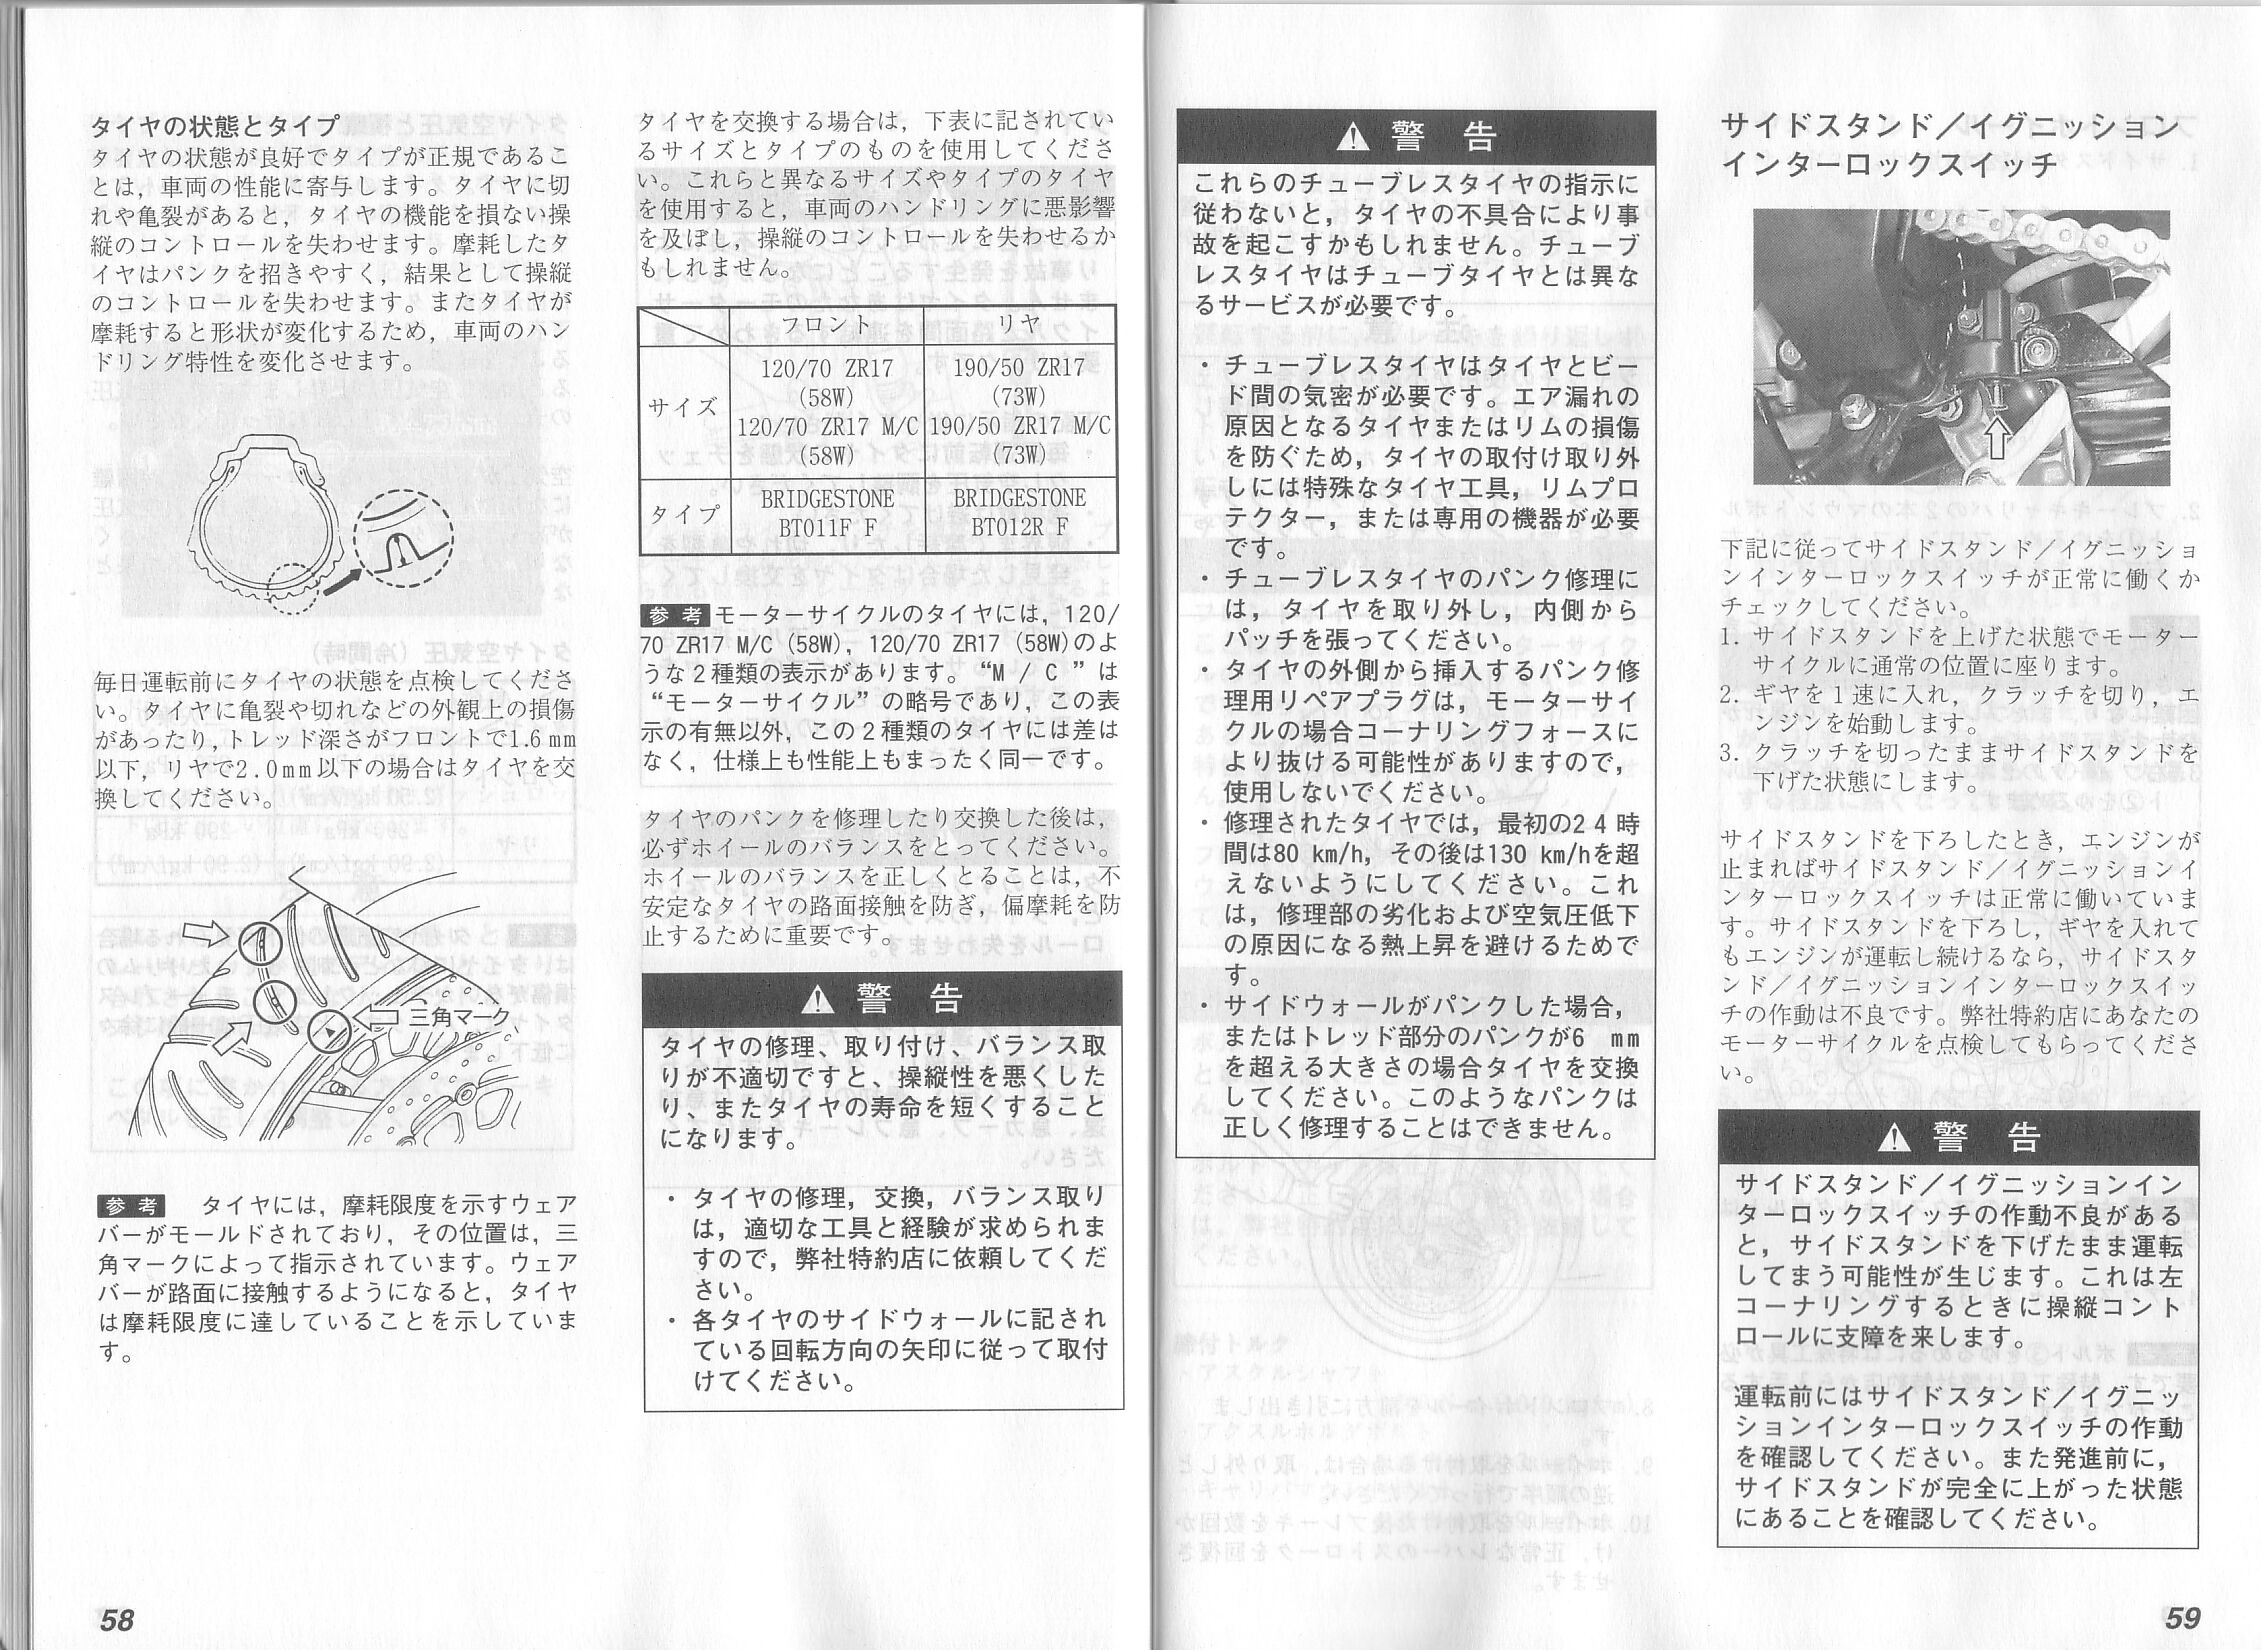 タイヤの状態とタイプ
タイヤの状態が良好でタイプが正規であるこ
とは，車両の性能に寄与します。タイヤに切
れや亀裂があると，タイヤの機能を損ない操
縦のコントロールを失わせます。摩耗したタ
イヤはパンクを招きやすく，結果として操縦
のコントロールを失わせます。またタイヤが
摩耗すると形状が変化するため，車両のハン
ドリング特性を変化させます。
毎日運転前にタイヤの状態を点検してくださ
い。タイヤに亀裂や切れなどの外観上の損傷
があったり，トレッド深さがフロントで1.6mm
以下，リヤで2.0mm以下の場合はタイヤを交
換してください。
三角マーク
参 考　タイヤには，摩耗限度を示すウェア
バーがモールドされており，その位置は，三
角マークによって指示されています。ウェア
バーが路面に接触するようになると，タイヤ
は摩耗限度に達していることを示していま
す。
58
タイヤを交換する場合は，下表に記されてい
るサイズとタイプのものを使用してくださ
い。これらと異なるサイズやタイプのタイヤ
を使用すると，車両のハンドリングに悪影響
を及ぼし，操縦のコントロールを失わせるか
もしれません。
フロント リヤ
サイズ
120/70 ZR17 190/50 ZR17
(58W) (73W)
120/70 ZR17 M/C 190/50 ZR17 M/C
(58W) (73W)
タイプ
BRIDGESTONE BRIDGESTONE
BT011F F BT012R F
参 考 モーターサイクルのタイヤには，120/
70 ZR17 M/C (58W)，120/70 ZR17 (58W)のよ
うな２種類の表示があります。“M / C ”は
“モーターサイクル”の略号であり，この表
示の有無以外，この２種類のタイヤには差は
なく，仕様上も性能上もまったく同一です。
タイヤのパンクを修理したり交換した後は，
必ずホイールのバランスをとってください。
ホイールのバランスを正しくとることは，不
安定なタイヤの路面接触を防ぎ，偏摩耗を防
止するために重要です。
警 告
タイヤの修理、取り付け、バランス取
りが不適切ですと、操縦性を悪くした
り、またタイヤの寿命を短くすること
になります。
・ タイヤの修理，交換，バランス取り
は，適切な工具と経験が求められま
すので，弊社特約店に依頼してくだ
さい。
・ 各タイヤのサイドウォールに記され
ている回転方向の矢印に従って取付
けてください。
警 告
これらのチューブレスタイヤの指示に
従わないと，タイヤの不具合により事
故を起こすかもしれません。チューブ
レスタイヤはチューブタイヤとは異な
るサービスが必要です。
・ チューブレスタイヤはタイヤとビー
ド間の気密が必要です。エア漏れの
原因となるタイヤまたはリムの損傷
を防ぐため，タイヤの取付け取り外
しには特殊なタイヤ工具，リムプロ
テクター，または専用の機器が必要
です。
・ チューブレスタイヤのパンク修理に
は，タイヤを取り外し，内側から
パッチを張ってください。
・ タイヤの外側から挿入するパンク修
理用リペアプラグは，モーターサイ
クルの場合コーナリングフォースに
より抜ける可能性がありますので，
使用しないでください。
・ 修理されたタイヤでは，最初の２４時
間は80 km/h，その後は130 km/hを超
えないようにしてください。これ
は，修理部の劣化および空気圧低下
の原因になる熱上昇を避けるためで
す。
・ サイドウォールがパンクした場合，
またはトレッド部分のパンクが6 mm
を超える大きさの場合タイヤを交換
してください。このようなパンクは
正しく修理することはできません。
サイドスタンド／イグニッション
インターロックスイッチ
下記に従ってサイドスタンド／イグニッショ
ンインターロックスイッチが正常に働くか
チェックしてください。
1. サイドスタンドを上げた状態でモーター
サイクルに通常の位置に座ります。
2. ギヤを１速に入れ，クラッチを切り，エ
ンジンを始動します。
3. クラッチを切ったままサイドスタンドを
下げた状態にします。
サイドスタンドを下ろしたとき，エンジンが
止まればサイドスタンド／イグニッションイ
ンターロックスイッチは正常に働いていま
す。サイドスタンドを下ろし，ギヤを入れて
もエンジンが運転し続けるなら，サイドスタ
ンド／イグニッションインターロックスイッ
チの作動は不良です。弊社特約店にあなたの
モーターサイクルを点検してもらってくださ
い。
警 告
サイドスタンド／イグニッションイン
ターロックスイッチの作動不良がある
と，サイドスタンドを下げたまま運転
してしまう可能性が生じます。これは左
コーナリングするときに操縦コント
ロールに支障を来します。
運転前にはサイドスタンド／イグニッ
ションインターロックスイッチの作動
を確認してください。また発進前に，
サイドスタンドが完全に上がった状態
にあることを確認してください。
59